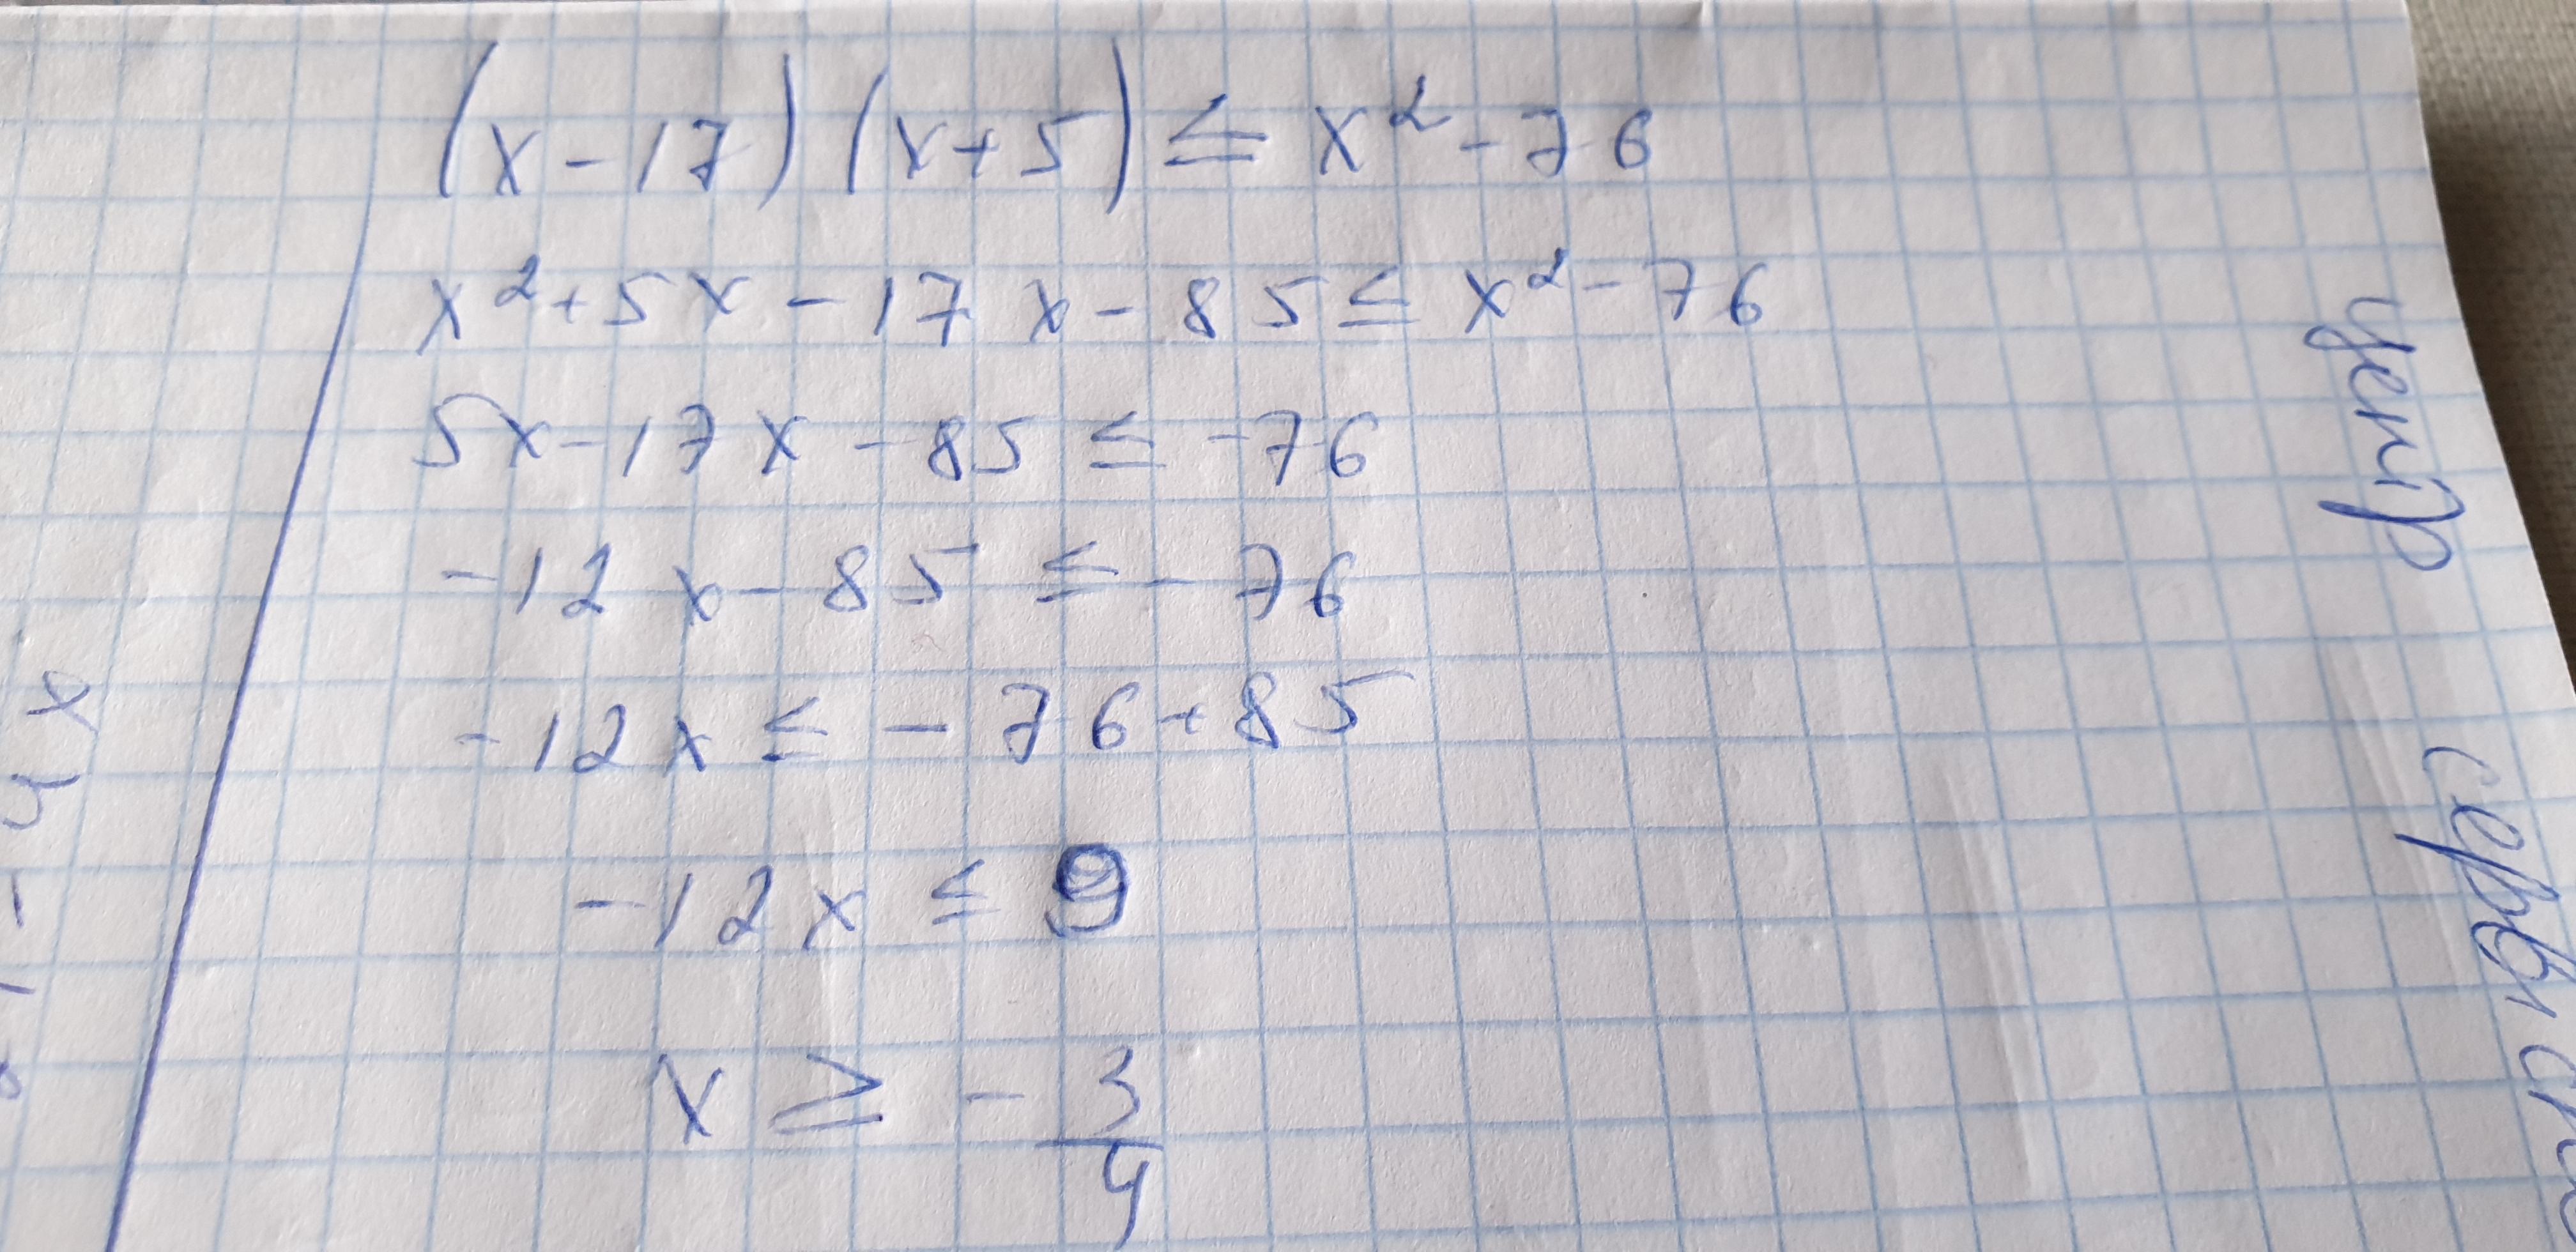 (x-17)(x+5)≤x²-76
x²+5x-17x-85≤x²-76
5x-17x-85≤-76
-12x-85≤-76
-12x≤-76+85
-12x≤9
x≥-3/4